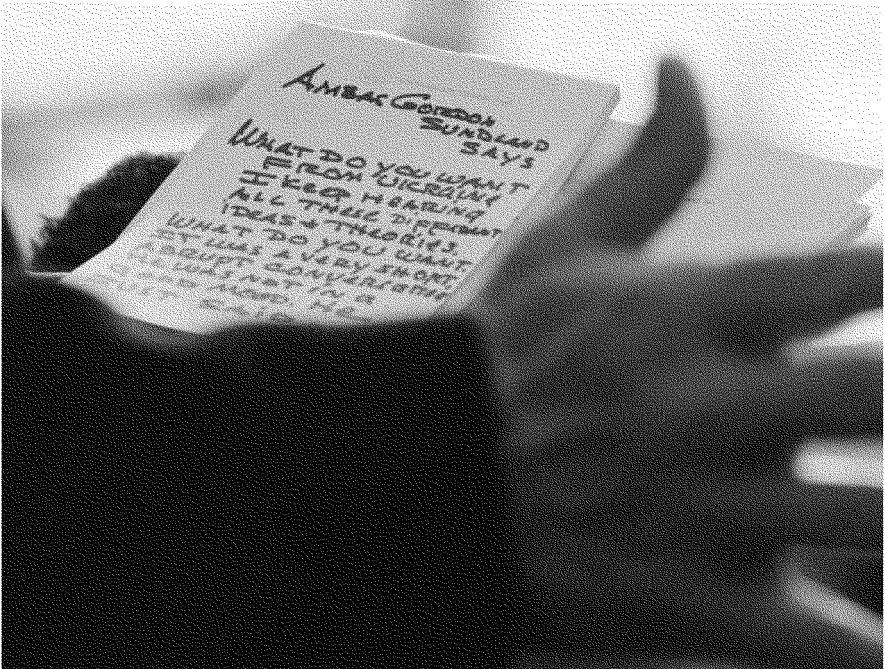 AMBAS GORDON
SUNDLAND
SAYS
WHAT DO YOU WANT
FROM UKRAINE
I KEEP HEARING
ALL THESE DIFFERENT
IDEAS + THEORIES.
WHAT DO YOU WANT
IT WAS A VERY SHORT
ABRUPT CONVERSATION
HE WAS NOT IN A
GOOD MOOD. HE
JUST SAID